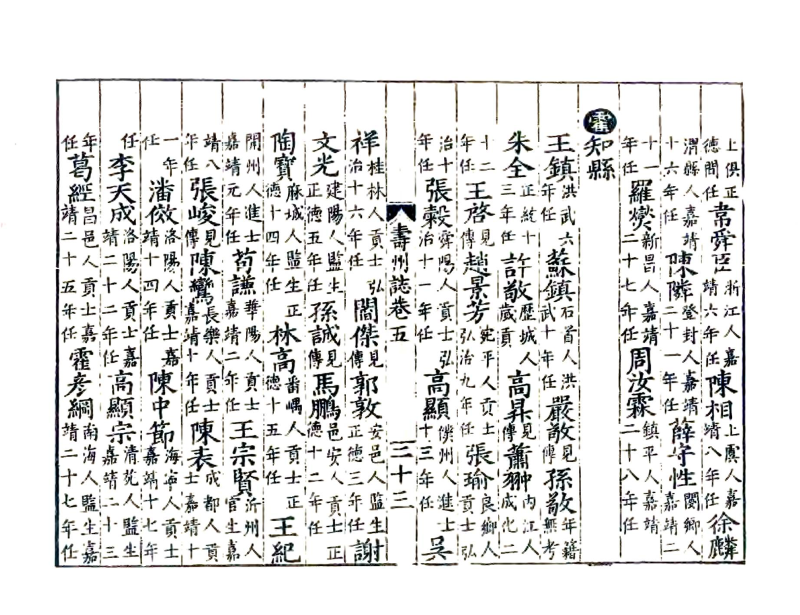 上俱正德間任韋舜臣浙江人嘉靖六年任陳相上虞人嘉靖八年任徐麟
渭縣人嘉靖十六年任陳隣登封人嘉靖二十一年任薛守性閿鄉人嘉靖二
十一年任羅爕新昌人嘉靖二十七年任周汝霖鎮平人嘉靖二十八年任
霍知縣
王鎮洪武六年任蘇鎮石首人洪武十年任嚴敔見傳孫敬年籍無考
朱全正統十三年任許敬歷城人歲貢高昇見傳蕭翀內江人成化二
十二年任王啓見傳趙景芳宛平人貢士弘治九年任張瑜良鄉人貢士弘
治十年任張縠舜陽人貢士弘治十一年任高顯儀州人進士十三年任吳
壽州誌卷五 三十三
祥桂林人貢士弘治十六年任閻傑見傳郭敦安邑人監生正德三年任謝
文光建陽人監生正德五年任孫誠見傳馬鵬邑安人貢士正德十二年任
陶寶麻城人監生正德十四年任林高番禺人貢士正德十五年任王紀
開州人進士嘉靖元年任苟謙華陽人貢士嘉靖二年任王宗賢沂州人官生嘉
靖八年任張峻見傳陳鸞長樂人貢士嘉靖十年任陳表成都人貢士嘉靖十
一年任潘傚洛陽人貢士嘉靖十四年任陳中節海寧人貢士嘉靖十七年
任李天成洛陽人貢士嘉靖二十二年任高顯宗清苑人監生嘉靖二十三
年任葛經昌邑人貢士嘉靖二十五年任霍彥綱南海人監生嘉靖二十七年任